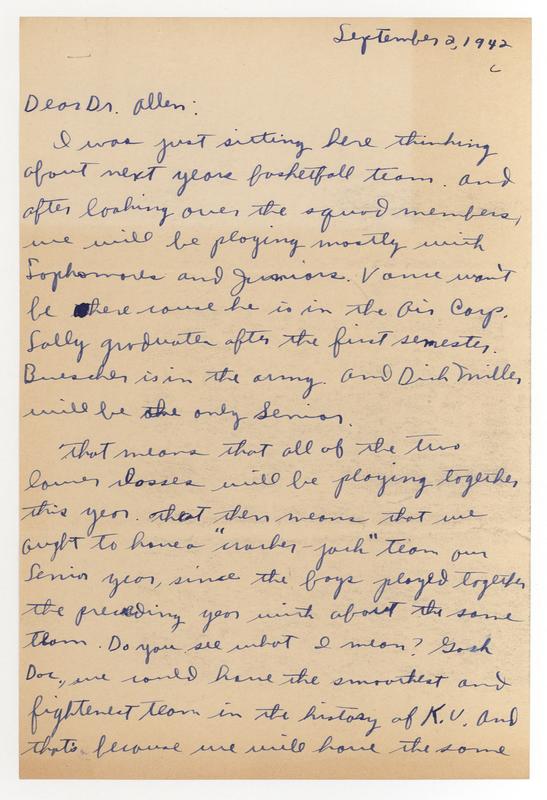 September 2, 1942
Dear Dr. Allen:
I was just sitting here thinking
about next years basketball team. And
after looking over the squad members,
we will be playing mostly with
Sophomores and Juniors. Vance won't
be here cause he is in the Air Corp.
Solly graduates after the first semester.
Buescher is in the army. And Dick Miller
will be the only Senior.
That means that all of the two
lower classes will be playing together
this year. That then means that we
ought to have a "cracker-jack" team our
Senior year, since the boys played together
the preceding year with about the same
team. Do you see what I mean? Gosh
Doc, we could have the smoothest and
fightenest team in the history of K.U. And
that's because we will have the some